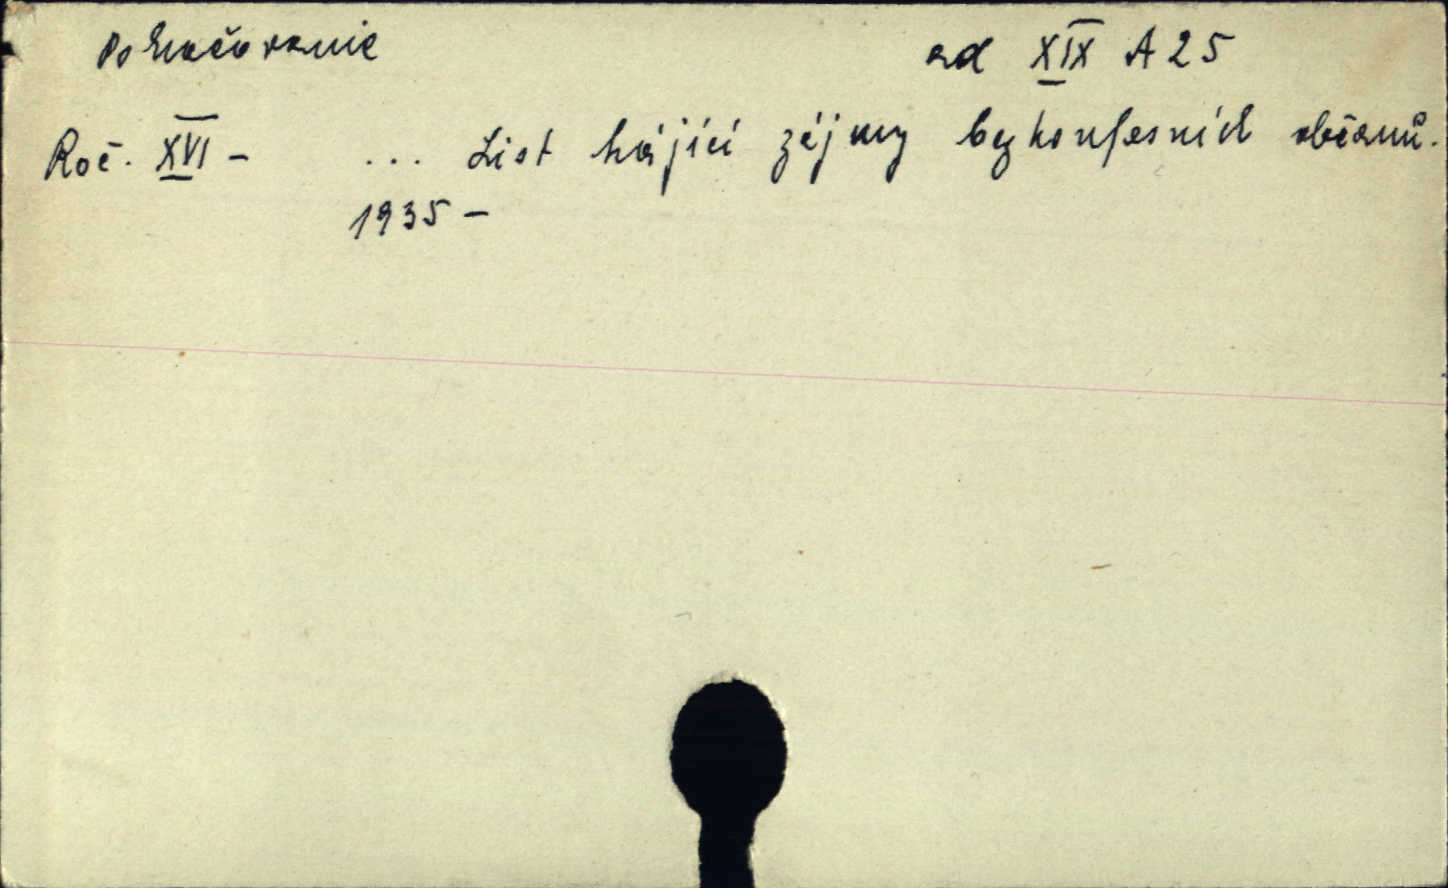 Pokračovanie od XIX A 25
Roč. XVI - ... List hájící zájmy bezkonfesních občanů.
1935 -